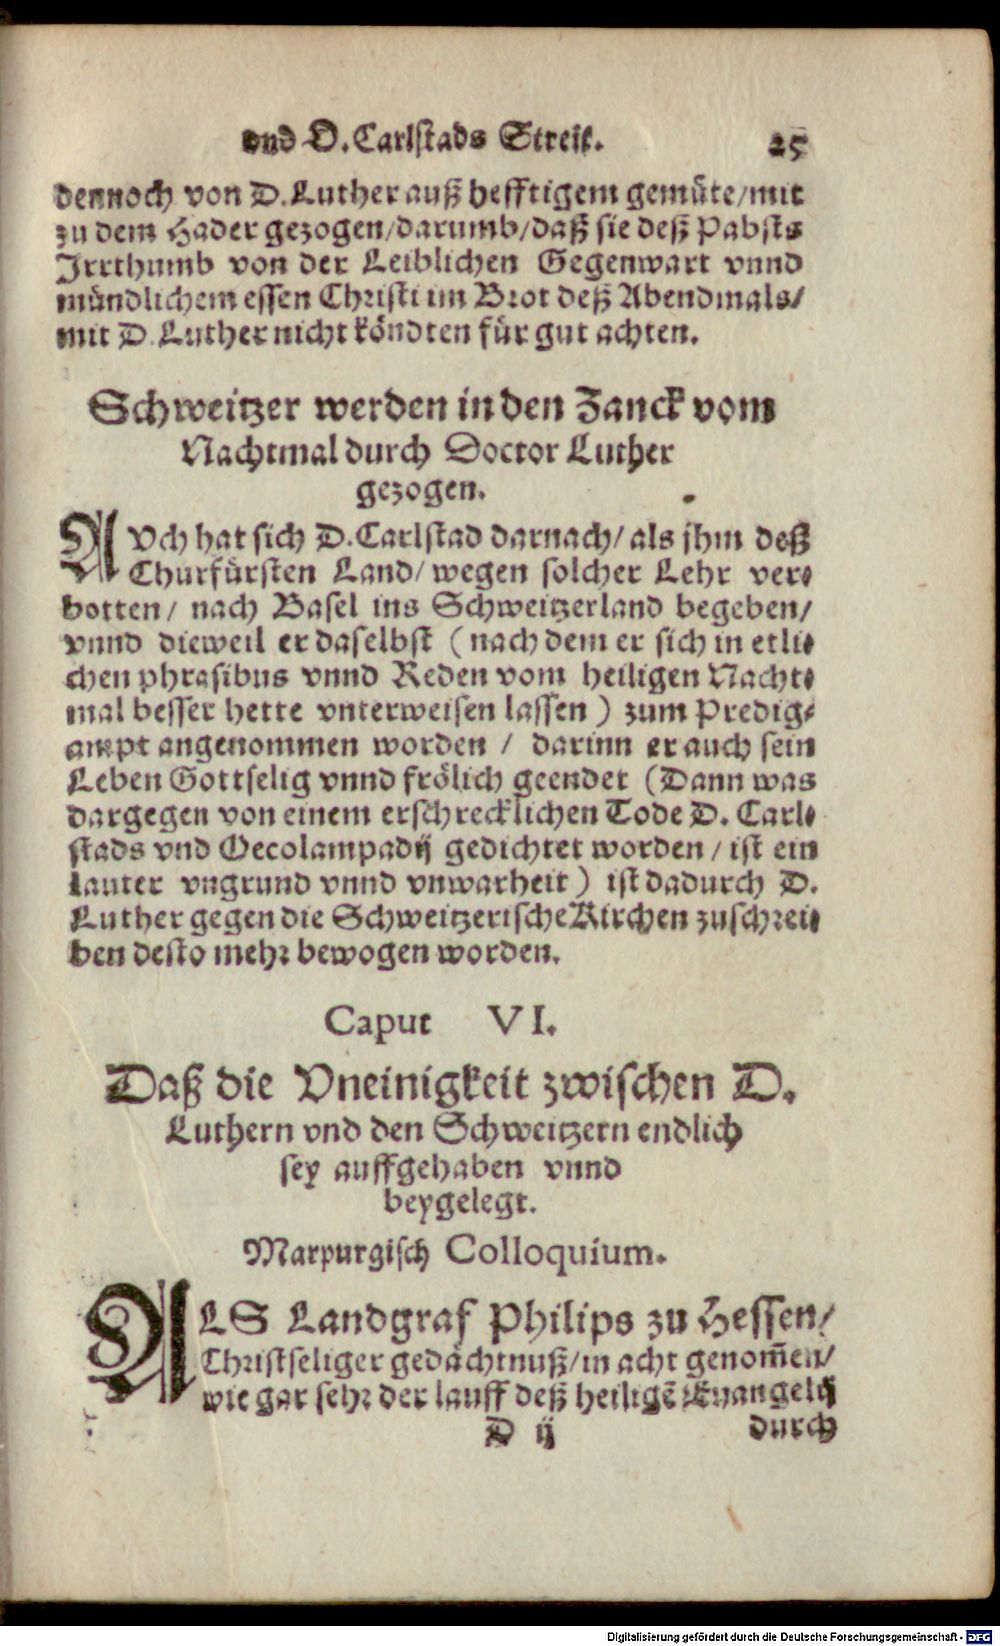 vnd D. Carlstads Streit. 25
dennoch von D. Luther auß hefftigem gemüte/mit
zu dem Hader gezogen/darumb/daß sie deß Pabsts
Irrthumb von der Leiblichen Gegenwart vnnd
mündlichem essen Christi im Brot deß Abendmals/
mit D. Luther nicht köndten für gut achten.
Schweitzer werden in den Zanck vom
Nachtmal durch Doctor Luther
gezogen.
AVch hat sich D. Carlstad darnach/ als jhm deß
Churfürsten Land/ wegen solcher Lehr ver⸗
botten/ nach Basel ins Schweitzerland begeben/
vnnd dieweil er daselbst ( nach dem er sich in etli⸗
chen phrasibus vnnd Reden vom heiligen Nacht⸗
mal besser hette vnterweisen lassen ) zum Predig⸗
ampt angenommen worden / darinn er auch sein
Leben Gottselig vnnd frölich geendet (Dann was
dargegen von einem erschrecklichen Tode D. Carl⸗
stads vnd Oecolampadij gedichtet worden / ist ein
lauter vngrund vnnd vnwarheit ) ist dadurch D.
Luther gegen die Schweitzerische Kirchen zuschrei⸗
ben desto mehr bewogen worden.
Caput VI.
Daß die Vneinigkeit zwischen D.
Luthern vnd den Schweitzern endlich
sey auffgehaben vnnd
beygelegt.
Marpurgisch Colloquium.
ALS Landgraf Philips zu Hessen/
Christseliger gedächtnuß/in acht genom̃en/
wie gar sehr der lauff deß heiligẽ Euangelij
D ij durch
Digitalisierung gefördert durch die Deutsche Forschungsgemeinschaft - DFG